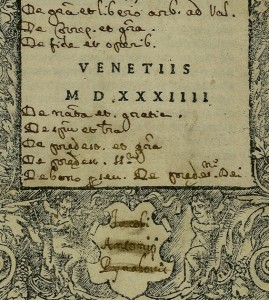 De grã et libero arb. ad Val.
De Correp. et grã.
De fide et operib.
VENETIIS
M D XXXIIII
De natã et gratia.
De spũ et lrã
De predest. et grã
De predest.
De bono De predest. Dei
Jacobi
Antonij